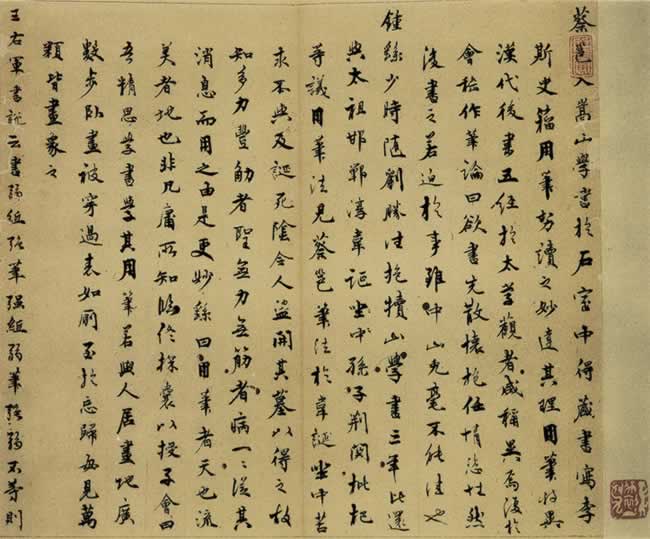 蔡邕入嵩山學書於石室中得藏書寫李
斯史籀用筆勢讀之妙達其理用筆特異
漢代後書五經於太學觀者咸稱異焉後於
會稽作筆論曰欲書先散懷抱任情恣性然
後書之若迫於事雖中山兔毫不能佳也
鍾繇少時隨劉勝往抱犢山學書三年比還
與太祖邯鄲淳韋誕坐中孫子荊關枇杷
等議用筆法見蔡邕筆法於韋誕坐中苦
求不與及誕死陰令人盜開其墓以得之故
知多力豐筋者聖無力無筋者病一一從其
消息而用之由是更妙繇曰用筆者天也流
美者地也非凡庸所知臨終探囊以授子會曰
吾精思學書學其用筆若與人居畫地廣
數步臥畫被穿過表如廁至於忘歸每見萬
類皆畫象之
王右軍書說云書弱紙強筆強紙弱筆強弱不等則